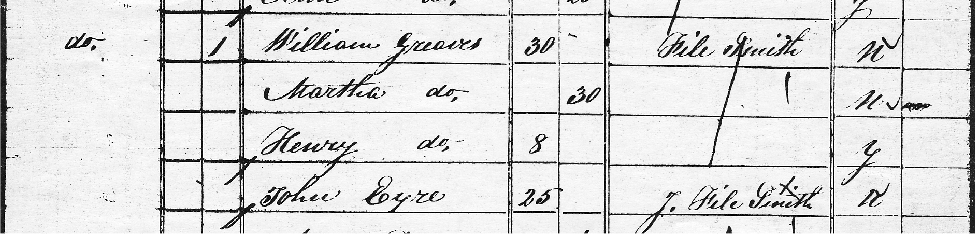 do. 1 William Greaves 30 File Smith N
Martha do. 30 N
Henry do. 8 y
John Eyre 25 J. File Smith N